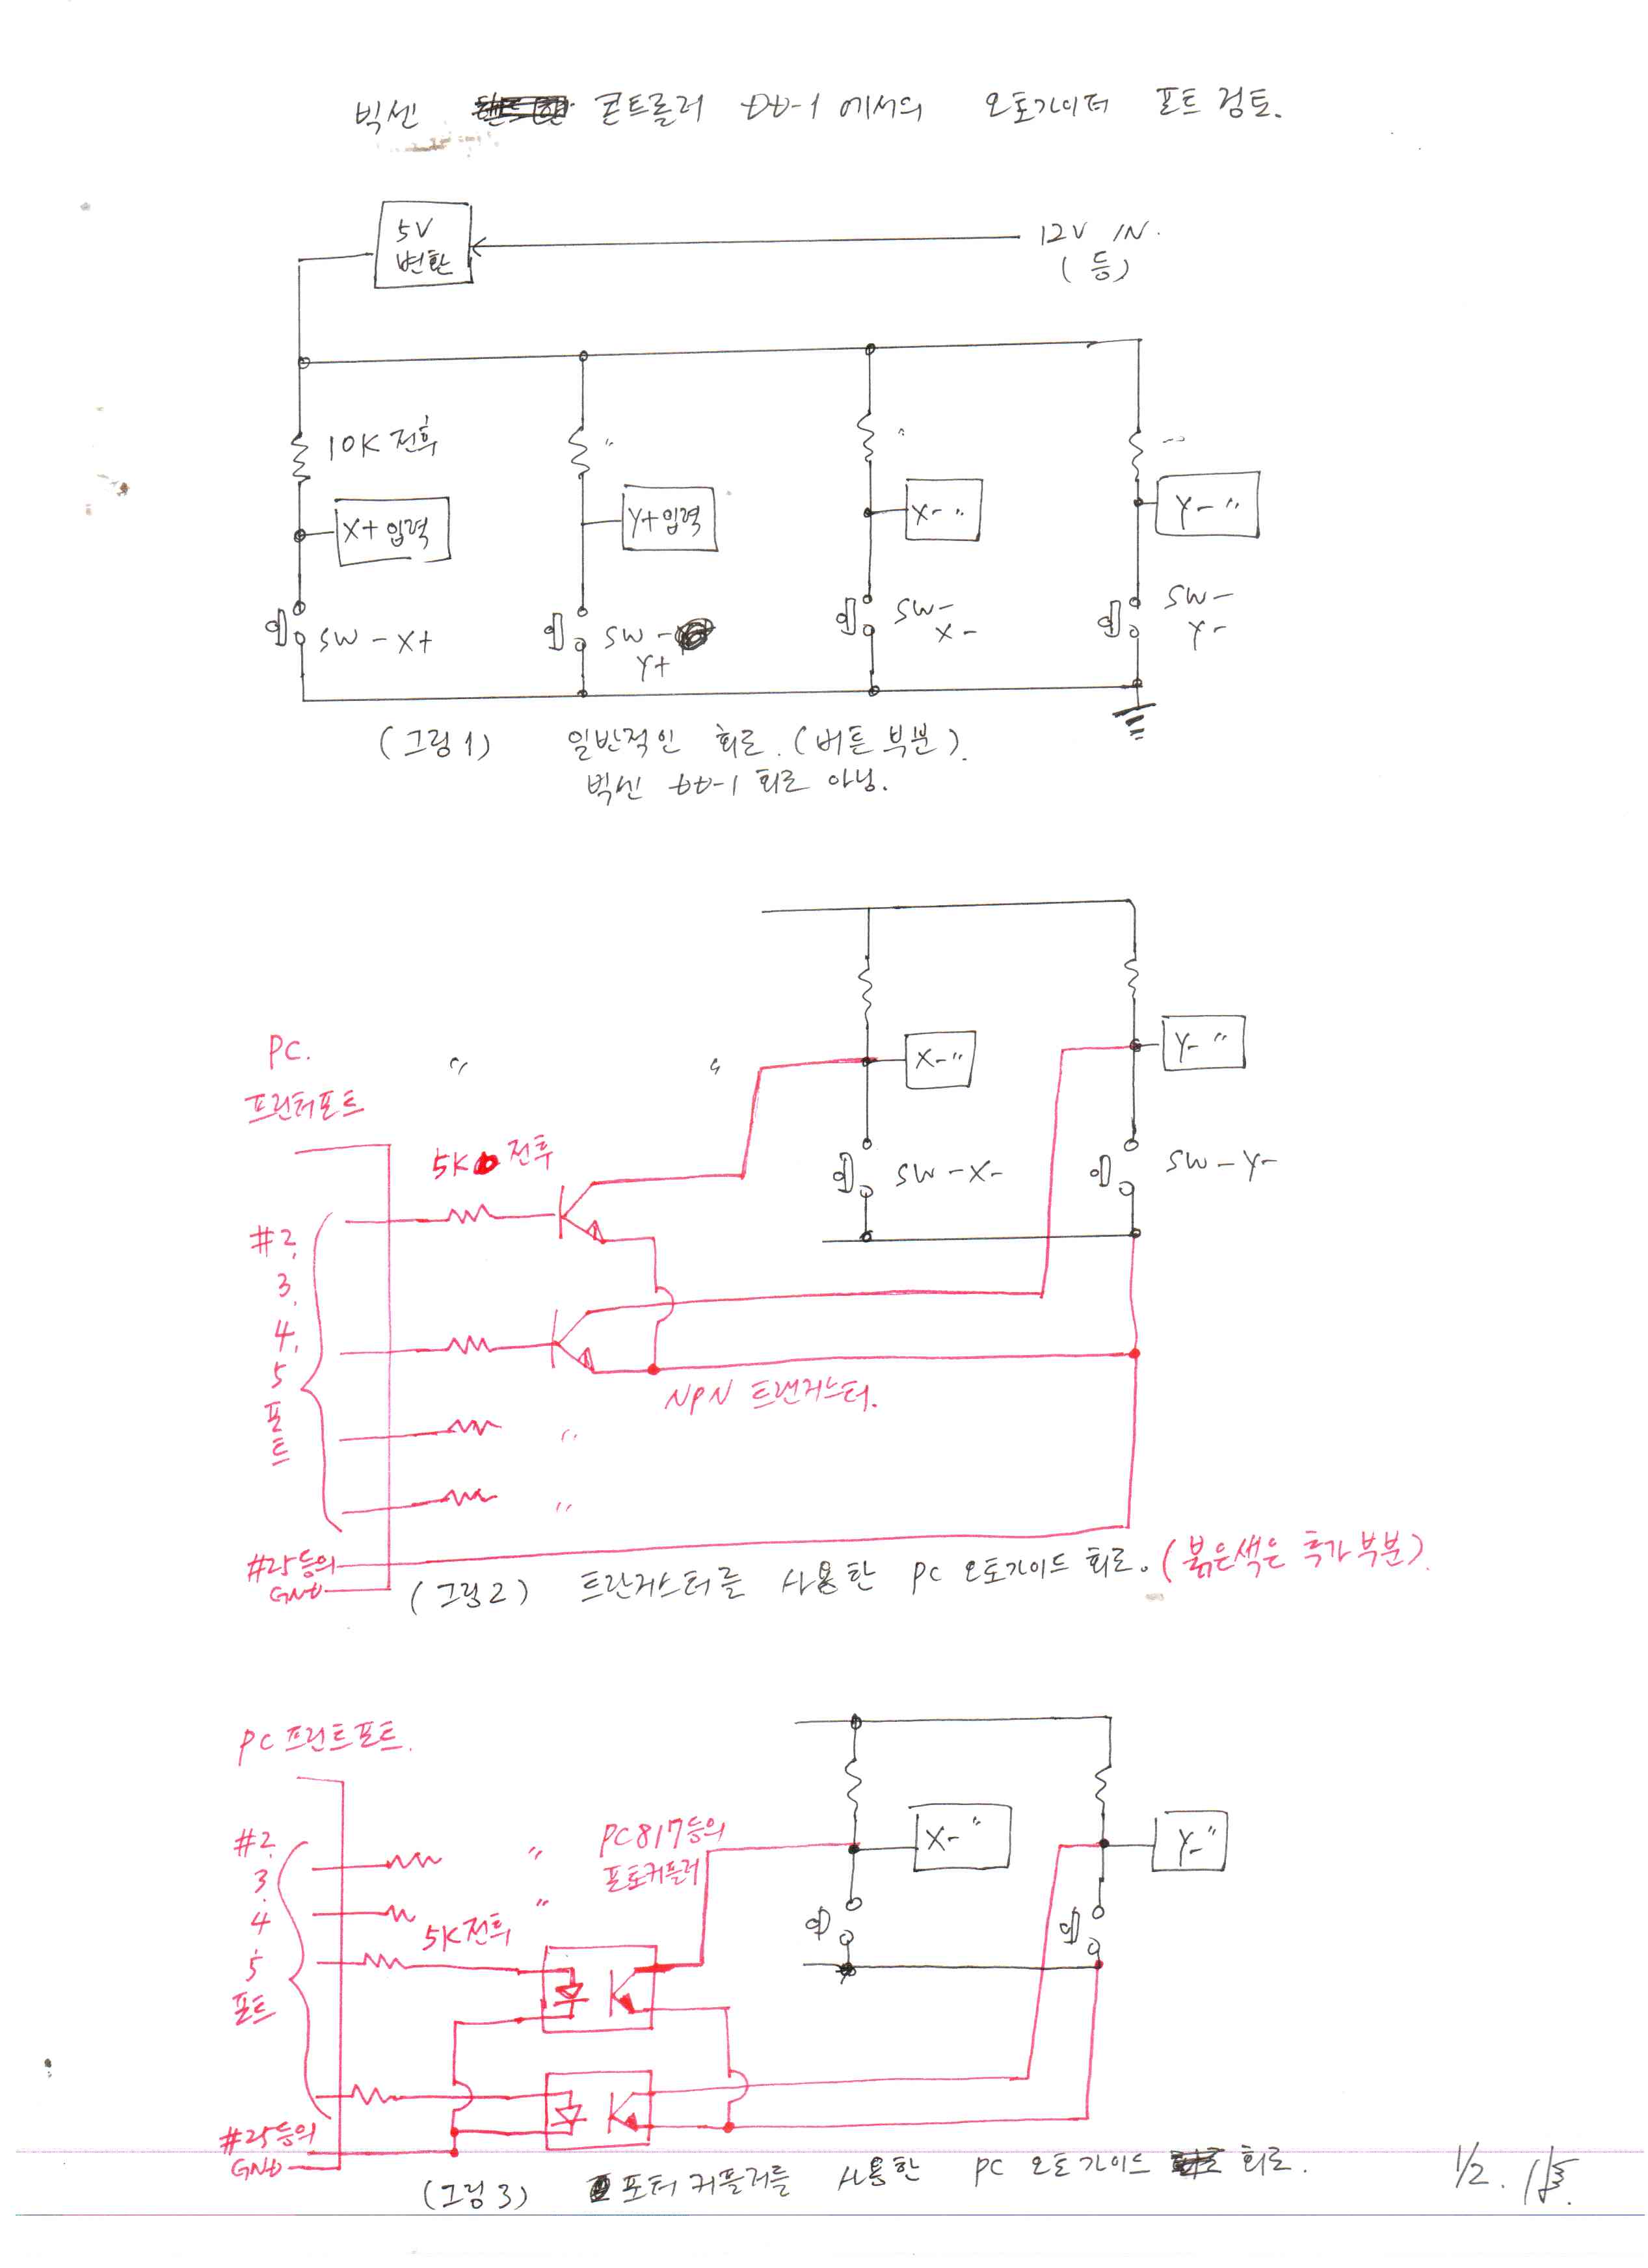 빅센 콘트롤러 DD-1 에서의 오토가이더 포트 검토.
5V
변환
12V IN.
(등)
10K 전후
"
"
"
X+ 입력
Y+ 입력
X- "
Y- "
SW - X+
SW -
Y+
SW -
X -
SW -
Y -
(그림 1) 일반적인 회로. (버튼 부분).
빅센 DD-1 회로 아님.
PC.
프린터포트
"
"
X- "
Y- "
5K 전후
SW - X-
SW - Y-
#2,
3,
4,
5
포
트
NPN 트랜지스터.
"
"
#25등의
GND
(그림 2) 트란지스터를 사용한 PC 오토가이드 회로. (붉은색은 추가부분).
PC 프린트포트.
#2,
3,
4,
5
포트
"
"
PC817등의
포토커플러
5K 전후
X- "
Y- "
#25등의
GND
(그림 3) 포터 커플러를 사용한 PC 오토가이드 회로.
1/2.